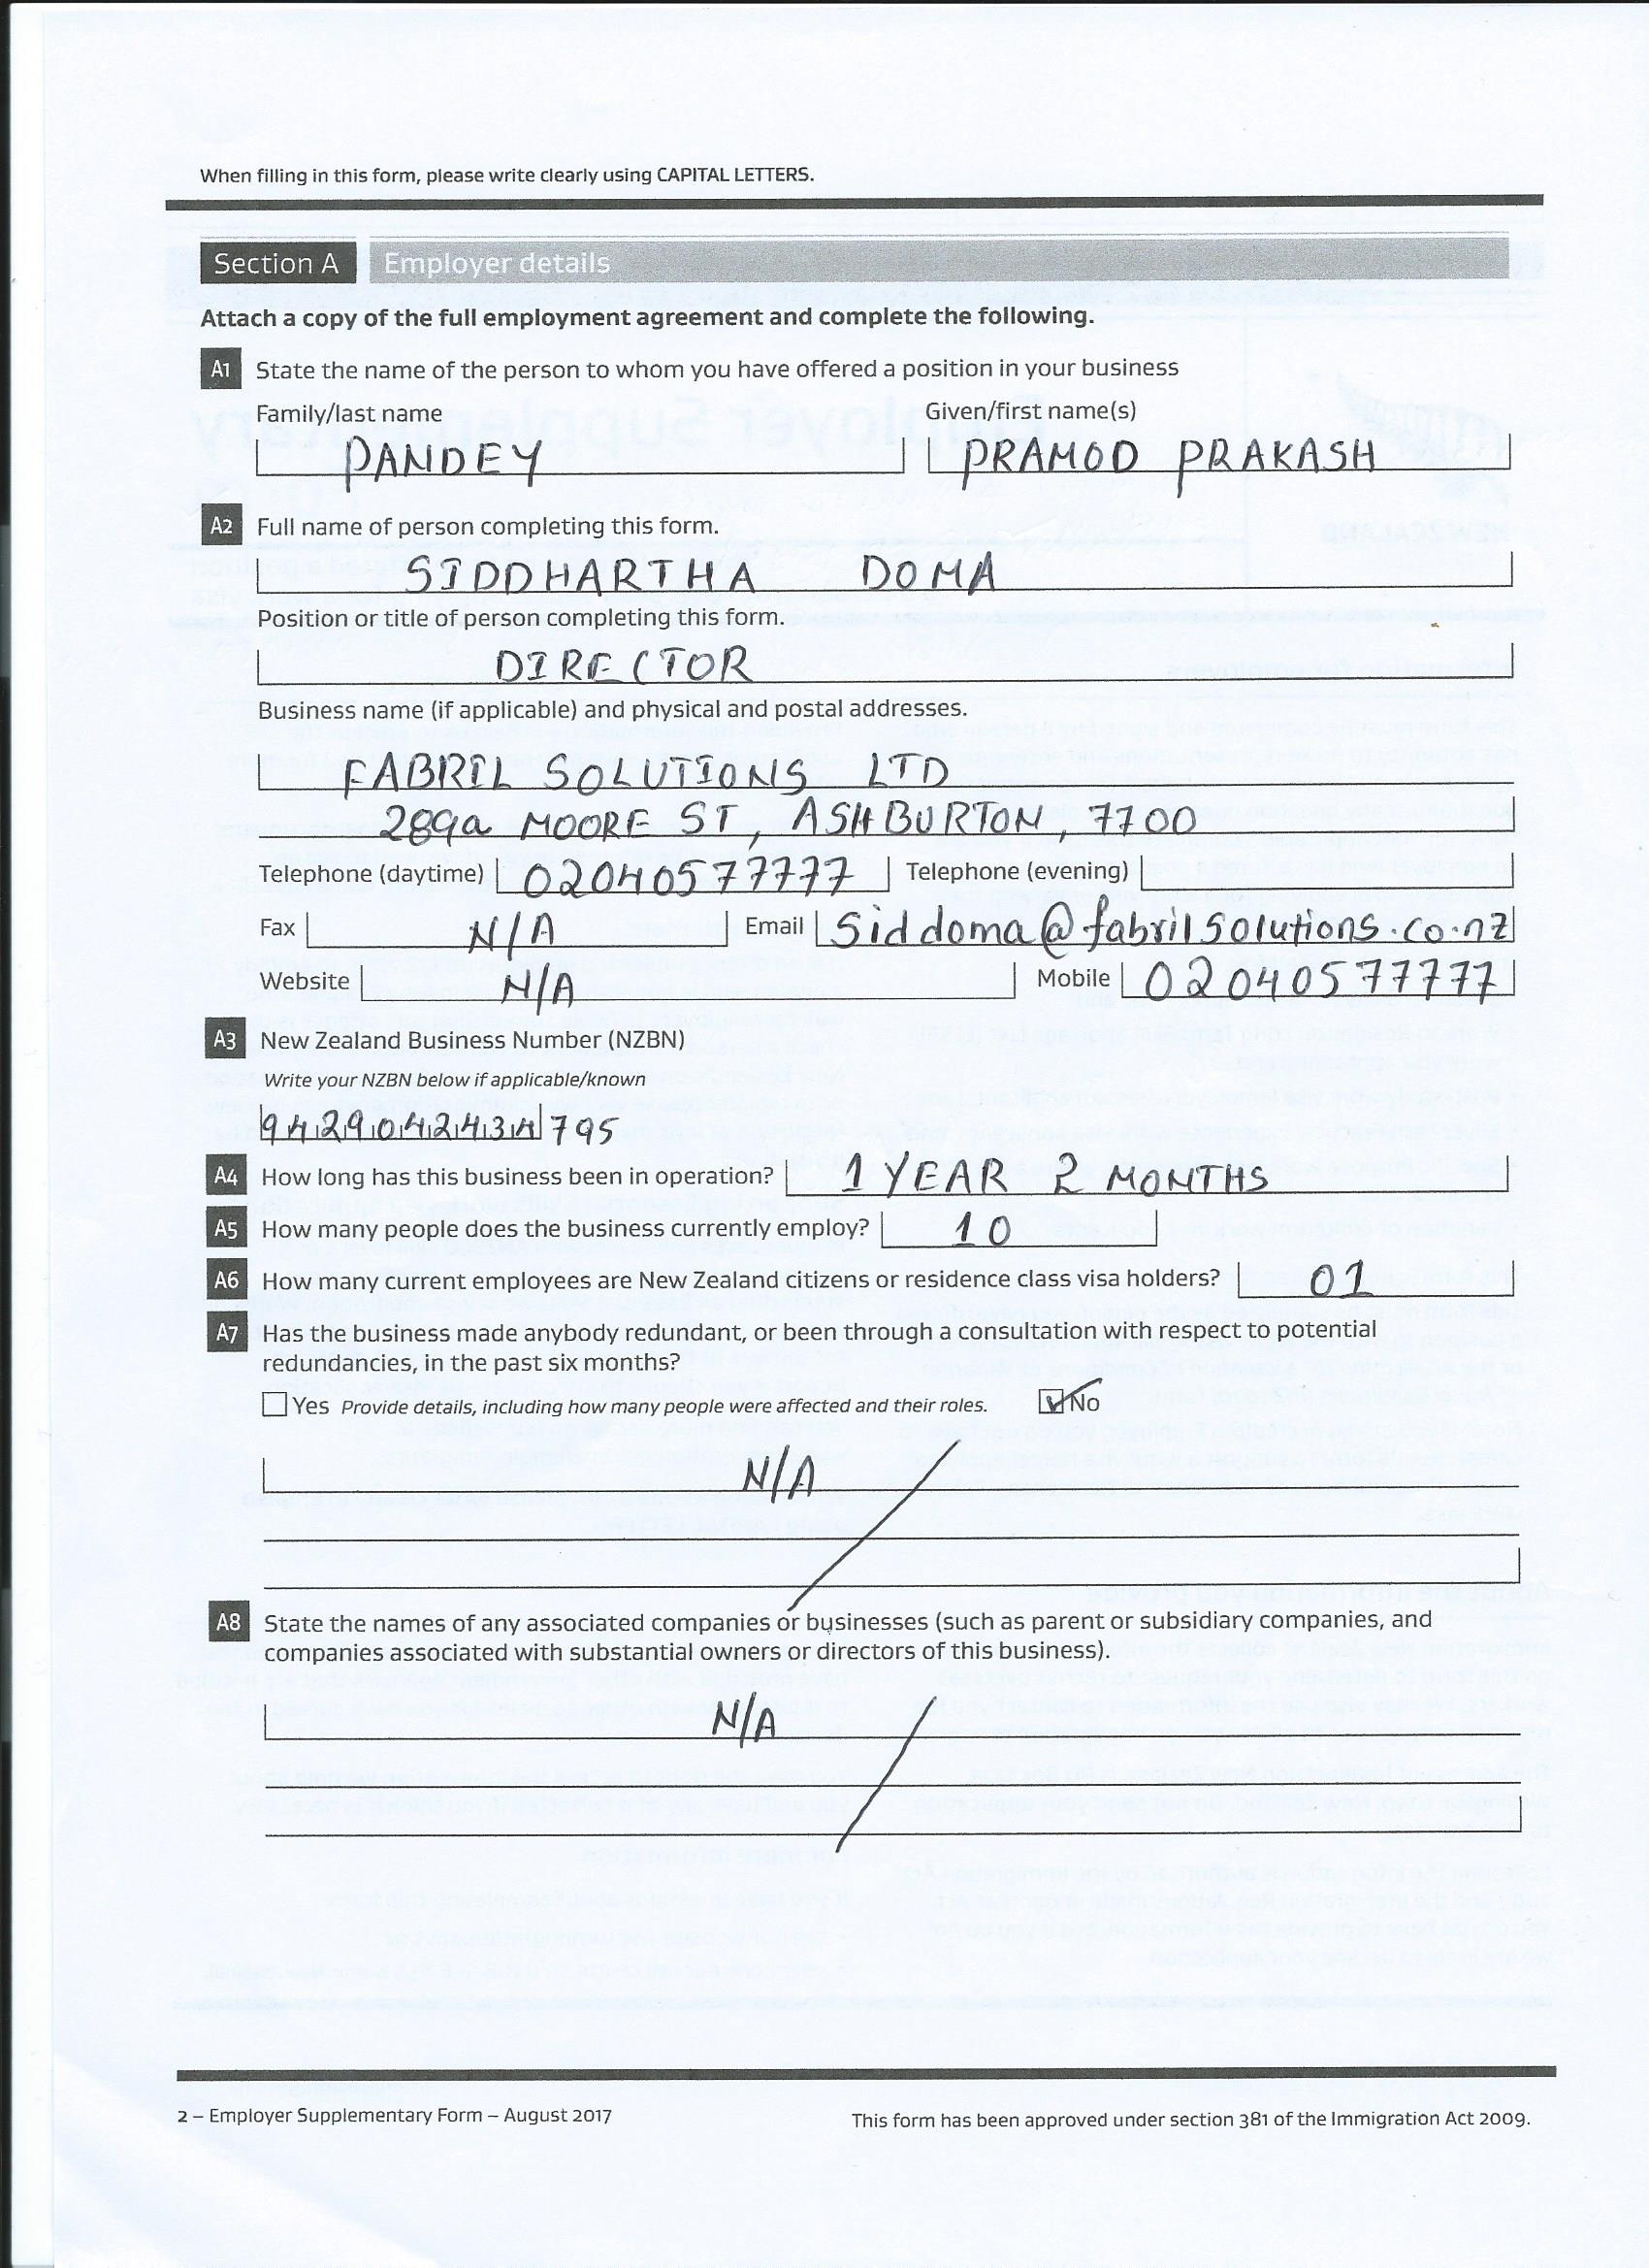 When filling in this form, please write clearly using CAPITAL LETTERS.
Section A Employer details
Attach a copy of the full employment agreement and complete the following.
A1 State the name of the person to whom you have offered a position in your business
Family/last name Given/first name(s)
PANDEY PRAMOD PRAKASH
A2 Full name of person completing this form.
SIDDHARTHA DOMA
Position or title of person completing this form.
DIRECTOR
Business name (if applicable) and physical and postal addresses.
FABRIL SOLUTIONS LTD
289a MOORE ST, ASHBURTON, 7700
Telephone (daytime) 02040577777 Telephone (evening)
Fax N/A Email Siddoma@fabrilsolutions.co.nz
Website N/A Mobile 02040577777
A3 New Zealand Business Number (NZBN)
Write your NZBN below if applicable/known
9429042434795
A4 How long has this business been in operation? 1 YEAR 2 MONTHS
A5 How many people does the business currently employ? 10
A6 How many current employees are New Zealand citizens or residence class visa holders? 01
A7 Has the business made anybody redundant, or been through a consultation with respect to potential
redundancies, in the past six months?
Yes Provide details, including how many people were affected and their roles. No
N/A
A8 State the names of any associated companies or businesses (such as parent or subsidiary companies, and
companies associated with substantial owners or directors of this business).
N/A
2 – Employer Supplementary Form – August 2017 This form has been approved under section 381 of the Immigration Act 2009.